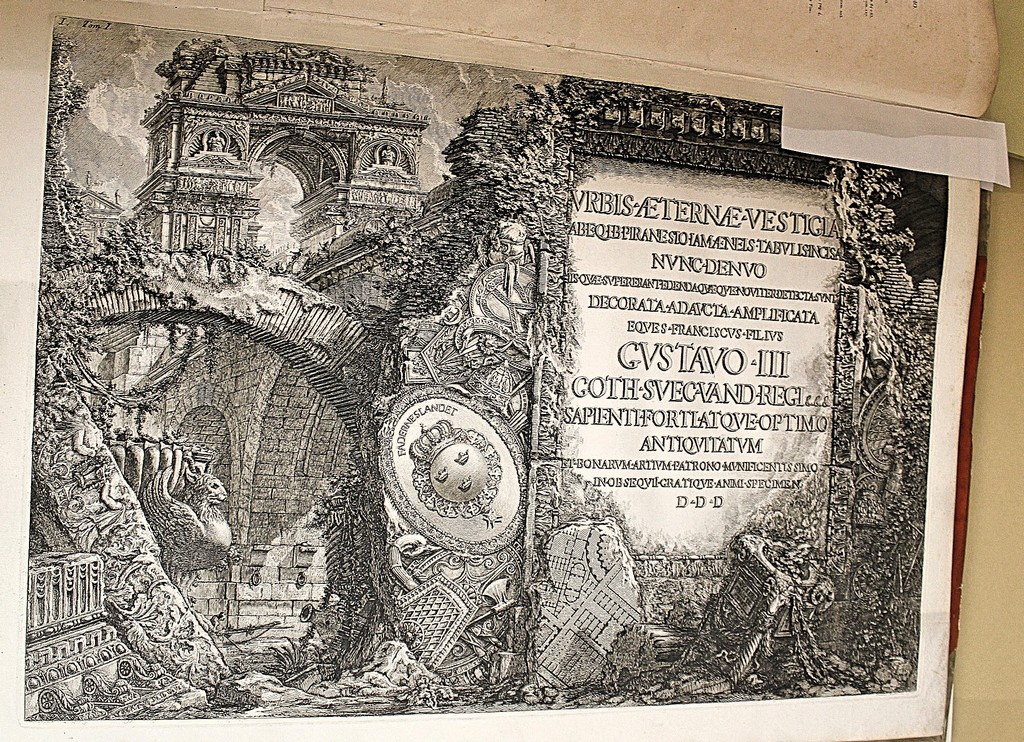 I. Tom I.
VRBIS·ÆTERNÆ·VESTIGIA
AB·EQ·I·B·PIRANESIO·HAMÆNEIS·TABVLIS·INCISA
NVNC·DENVO
DECORATA·ADAVCTA·AMPLIFICATA
EQVES·FRANCISCVS·FILIVS
GVSTAVO·III
GOTH·SVEC·VAND·REGI
SAPIENTI·FORTI·ATQVE·OPTIMO
ANTIQVITATVM
ET·BONARVM·ARTIVM·PATRONO·MVNIFICENTISSIMO
IN·OBSEQVII·GRATIQVE·ANIMI·SPECIMEN
D·D·D
FADERNESLANDET